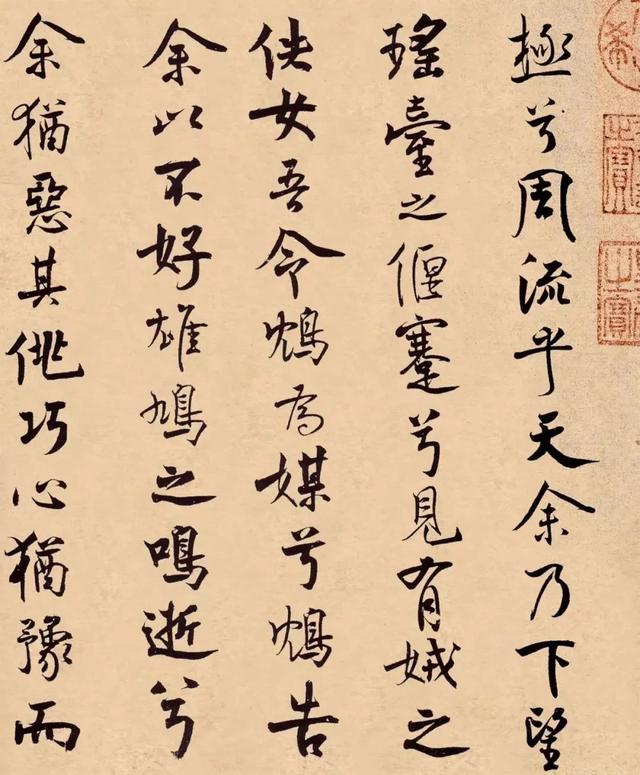 極兮周流乎天余乃下望
瑤臺之偃蹇兮見有娀之
佚女吾令鴆為媒兮鴆告
余以不好雄鳩之鳴逝兮
余猶惡其佻巧心猶豫而
之寶
之寶